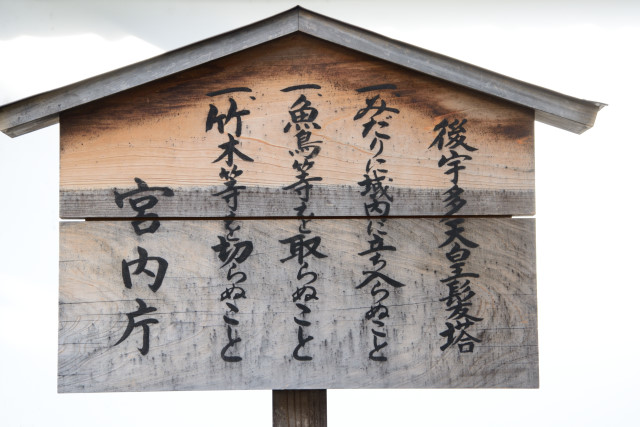 後宇多天皇髮塔
一、みだりに域内に立ち入らぬこと
一、魚鳥等を取らぬこと
一、竹木等を切らぬこと
宮内庁